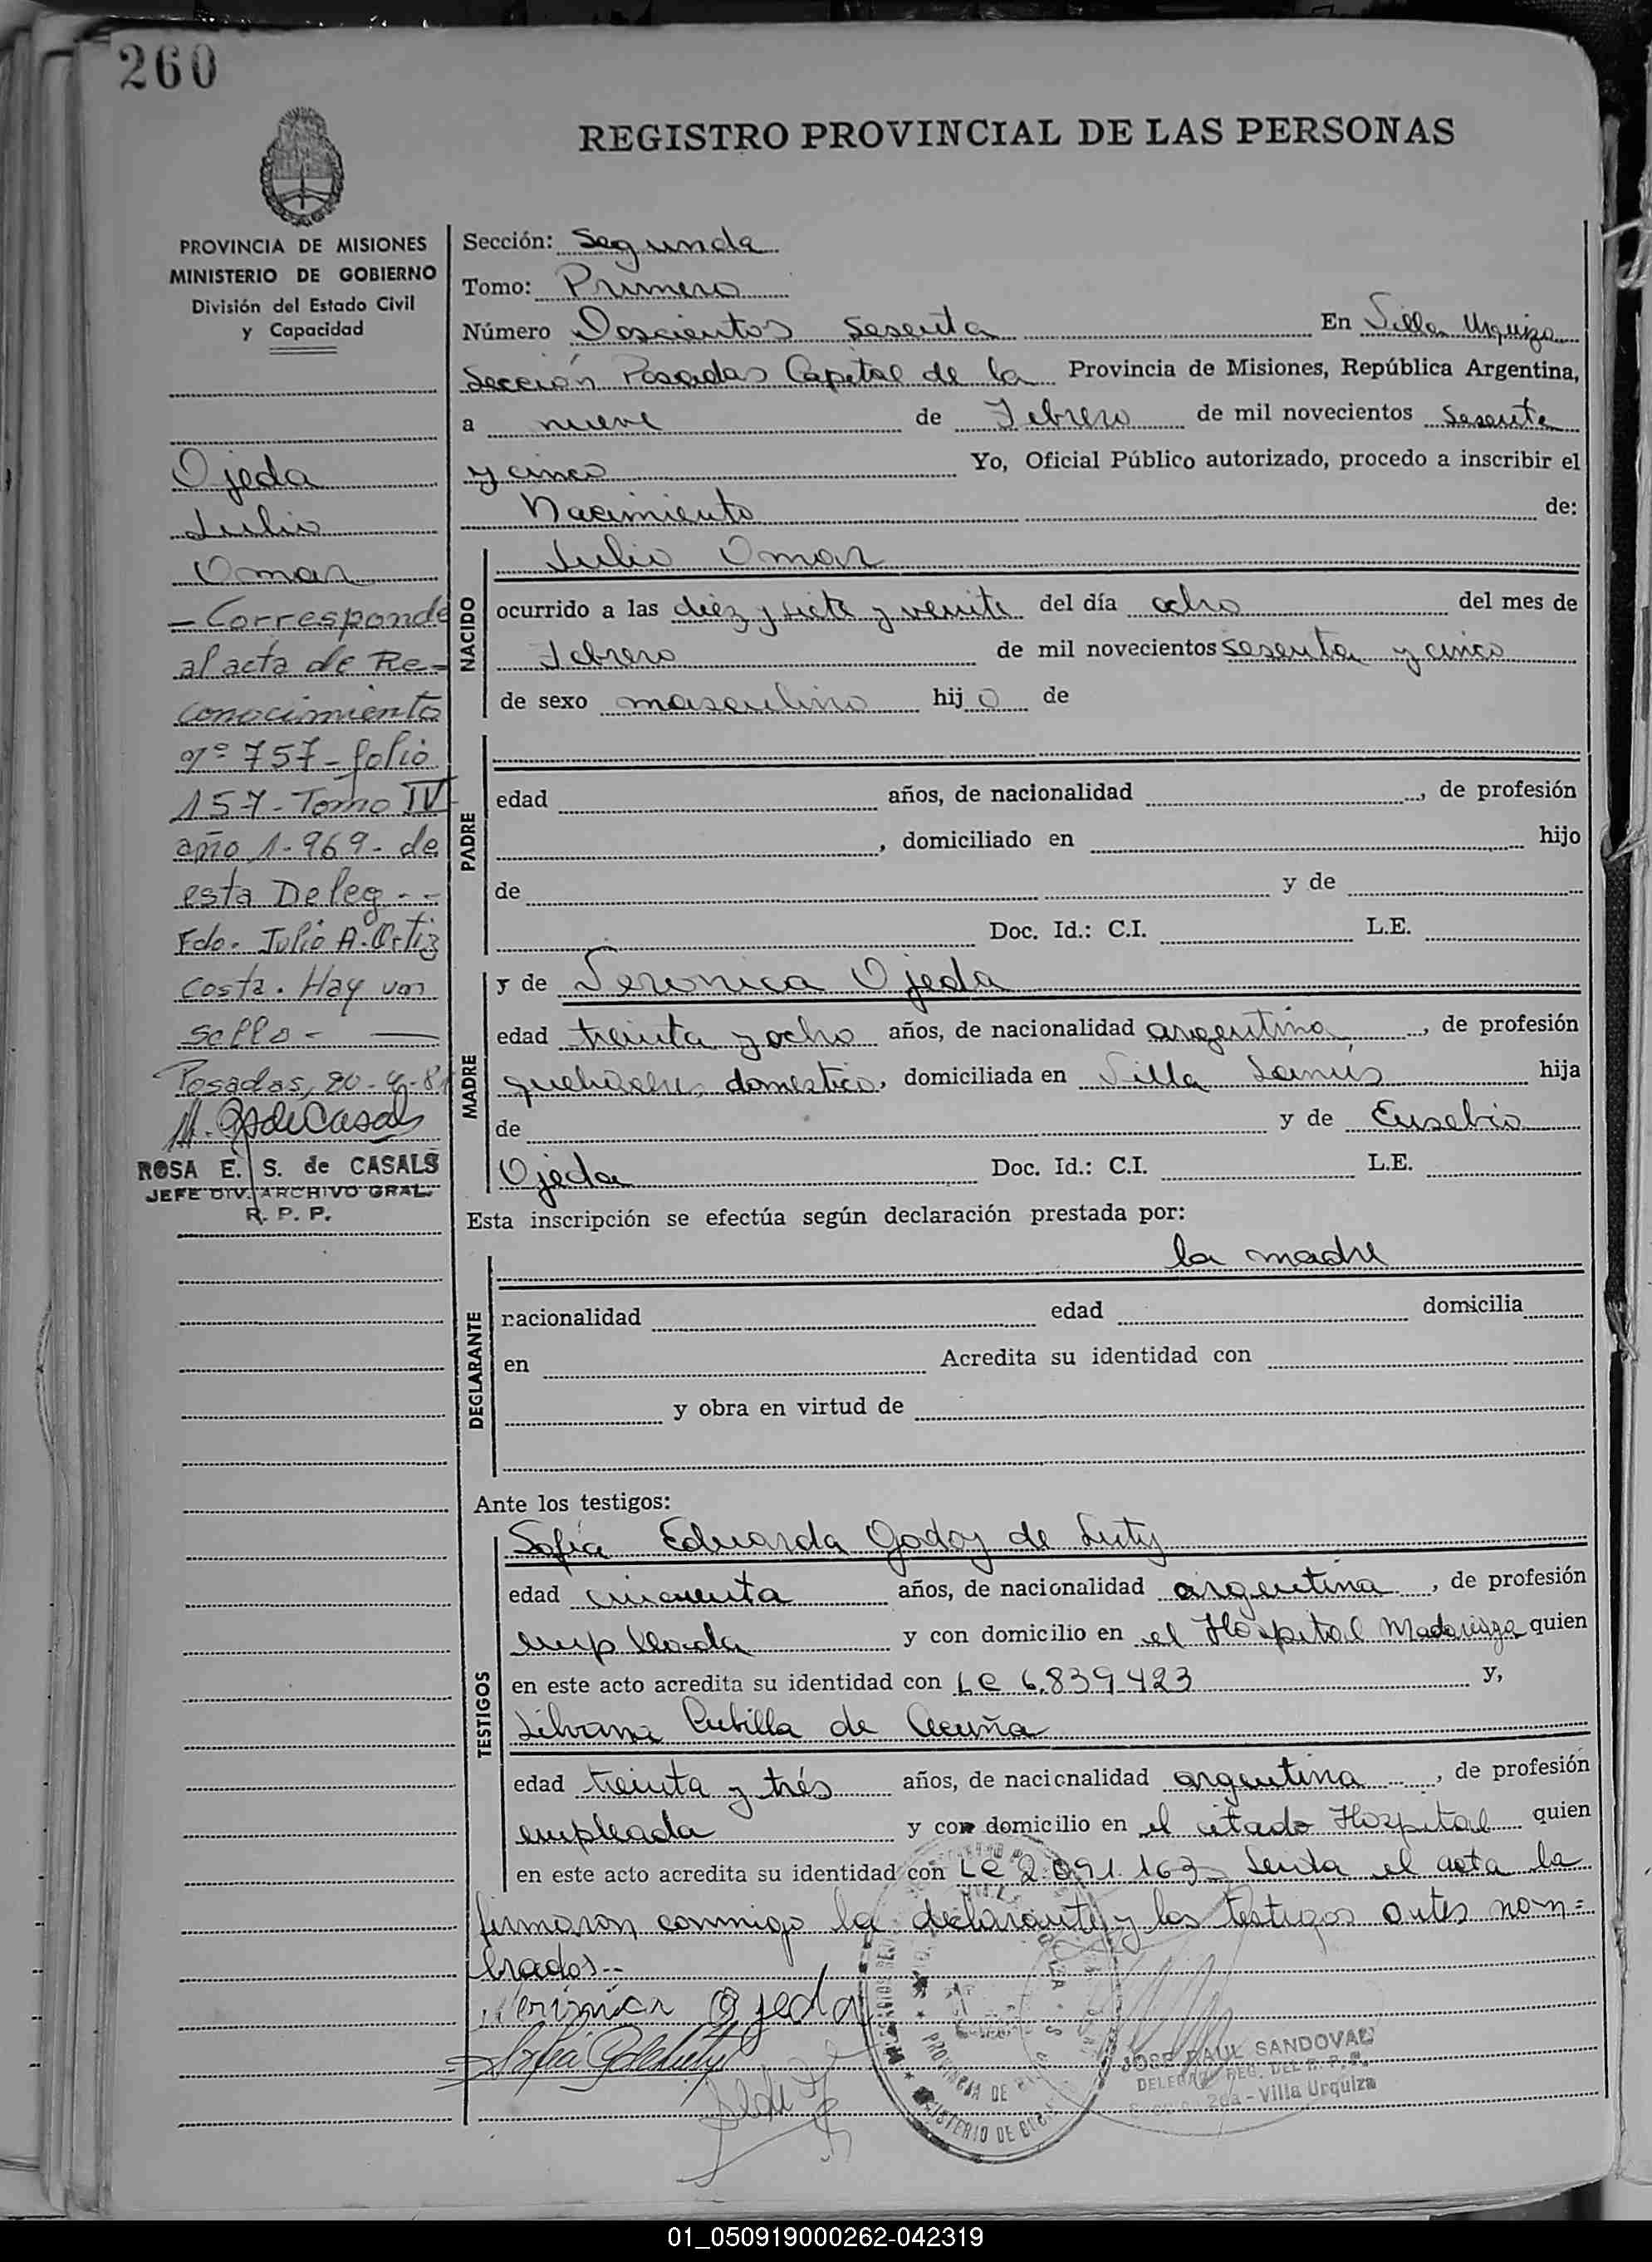 260
REGISTRO PROVINCIAL DE LAS PERSONAS
PROVINCIA DE MISIONES
MINISTERIO DE GOBIERNO
División del Estado Civil
y Capacidad
Ojeda
Julio
Omar
- Corresponde
al acta de Re-
conocimiento
nº 757 - folio
157 - Tomo IV
año 1.969 - de
esta Deleg --
Fdo. Julio A. Ortiz
Costa. Hay un
sello -
Posadas, 20-4-81
ROSA E. S. de CASALS
JEFE DIV. ARCHIVO GRAL.
R. P. P.
Sección: Segunda
Tomo: Primero
Número Doscientos sesenta En Villa Urquiza
Sección Posadas Capital de la Provincia de Misiones, República Argentina,
a nueve de Febrero de mil novecientos sesenta
y cinco Yo, Oficial Público autorizado, procedo a inscribir el
Nacimiento de:
NACIDO
Julio Omar
ocurrido a las diez y siete y veinte del día ocho del mes de
Febrero de mil novecientos sesenta y cinco
de sexo masculino hijo de
PADRE
edad años, de nacionalidad , de profesión
, domiciliado en hijo
de y de
Doc. Id.: C.I. L.E.
MADRE
y de Veronica Ojeda
edad treinta y ocho años, de nacionalidad argentina , de profesión
domestico, domiciliada en Villa Lanús hija
de y de Eusebio
Ojeda Doc. Id.: C.I. L.E.
Esta inscripción se efectúa según declaración prestada por:
la madre
DECLARANTE
nacionalidad edad domicilia
en Acredita su identidad con
y obra en virtud de
Ante los testigos:
TESTIGOS
Sofía Eduarda Godoy de Luty
edad cincuenta años, de nacionalidad argentina , de profesión
empleada y con domicilio en el Hospital Madariaga quien
en este acto acredita su identidad con LC 6.839.423 y,
Silvana Cubilla de Acuña
edad treinta y trés años, de nacionalidad argentina , de profesión
empleada y con domicilio en el citado Hospital quien
en este acto acredita su identidad con LC 2.091.163 Leida el acta la
firmaron conmigo la declarante y los testigos antes nom=
brados --
Veronica Ojeda
JOSE RAUL SANDOVAL
DELEGADO REG. DEL R. P. P.
Sección 2da - Villa Urquiza
PROVINCIA DE
MINISTERIO DE
01_050919000262-042319